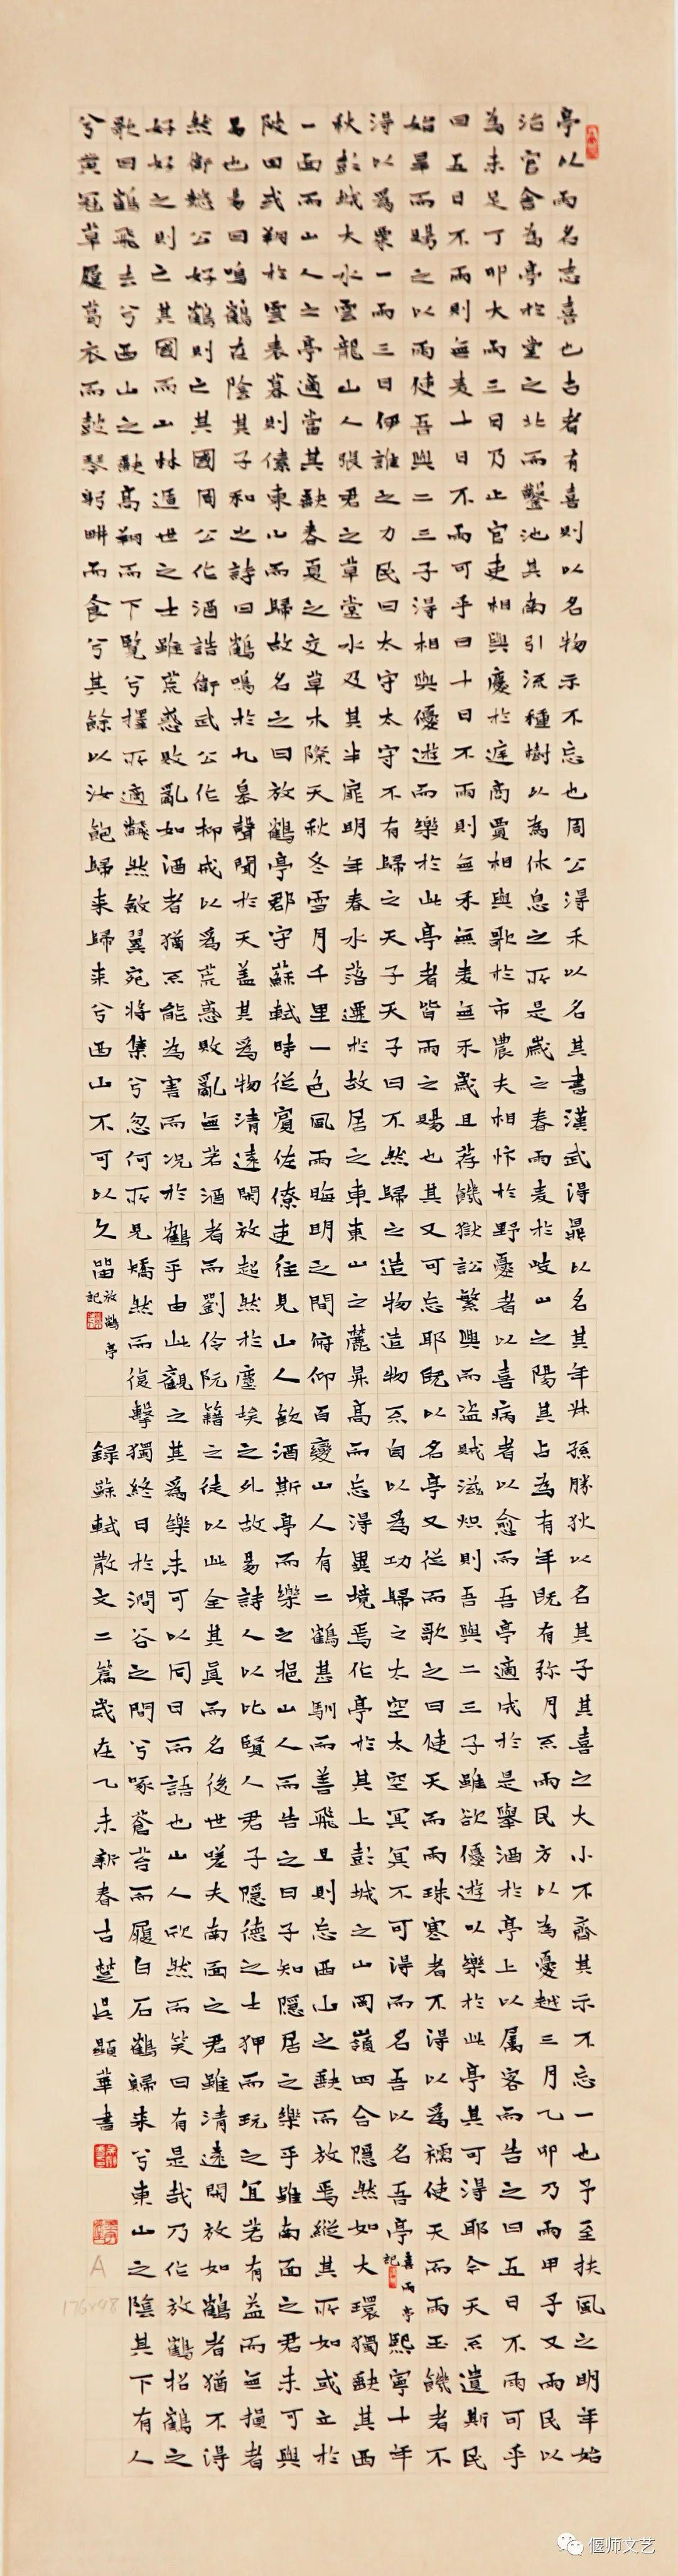 亭以雨名志喜也古者有喜則以名物示不忘也周公得禾以名其書漢武得鼎以名其年叔孫勝狄以名其子其喜之大小不齊其示不忘一也予至扶風之明年始
治官舍為亭於堂之北而鑿池其南引流種樹以為休息之所是歲之春雨麥於岐山之陽其占為有年既有弥月不雨民方以為憂越三月乙卯乃雨甲子又雨民以
為未足丁卯大雨三日乃止官吏相與慶於庭商賈相與歌於市農夫相忭於野憂者以喜病者以愈而吾亭適成於是舉酒於亭上以属客而告之曰五日不雨可乎
曰五日不雨則無麦十日不雨可乎曰十日不雨則無禾無麦無禾歲且荐饑獄訟繁興而盜賊滋炽則吾與二三子雖欲優遊以樂於此亭其可得耶今天不遺斯民
始旱而賜之以雨使吾與二三子得相與優遊而樂於此亭者皆雨之賜也其又可忘耶既以名亭又從而歌之曰使天而雨珠寒者不得以爲襦使天而雨玉饑者不
得以爲粟一雨三日伊誰之力民曰太守太守不有歸之天子天子曰不然歸之造物造物不自以爲功歸之太空太空冥冥不可得而名吾以名吾亭
喜雨亭記
熙寧十年
秋彭城大水雲龍山人張君之草堂水及其半扉明年春水落遷於故居之東東山之麓昇高而望得異境焉作亭於其上彭城之山岡嶺四合隱然如大環獨缺其西
一面而山人之亭適當其缺春夏之交草木際天秋冬雪月千里一色風雨晦明之間俯仰百變山人有二鶴甚馴而善飛旦則望西山之缺而放焉縱其所如或立於
陂田或翔於雲表暮則傃東山而歸故名之曰放鶴亭郡守蘇軾時從賓佐僚吏往見山人飲酒斯亭而樂之挹山人而告之曰子知隱居之樂乎雖南面之君未可與
易也易曰鳴鶴在陰其子和之詩曰鶴鳴於九皋聲聞於天蓋其爲物清遠閒放超然於塵埃之外故易詩人以比賢人君子隱德之士狎而玩之宜若有益而無損者
然衛懿公好鶴則亡其國周公作酒誥衛武公作抑戒以爲荒惑敗亂無若酒者而劉伶阮籍之徒以此全其真而名後世嗟夫南面之君雖清遠閒放如鶴者猶不得
好好之則亡其國而山林遁世之士雖荒惑敗亂如酒者猶不能為害而況於鶴乎由此觀之其爲樂未可以同日而語也山人欣然而笑曰有是哉乃作放鶴招鶴之
歌曰鶴飛去兮西山之缺高翔而下覽兮擇所適翻然斂翼宛將集兮忽何所見矯然而復擊獨終日於澗谷之間兮啄蒼苔而履白石鶴歸來兮東山之陰其下有人
兮黃冠草屨葛衣而鼓琴躬畊而食兮其餘以汝飽歸來歸來兮西山不可以久留
放鶴亭記
録蘇軾散文二篇歲在乙未新春古楚吳顯華書
A
176×48
偃师文艺